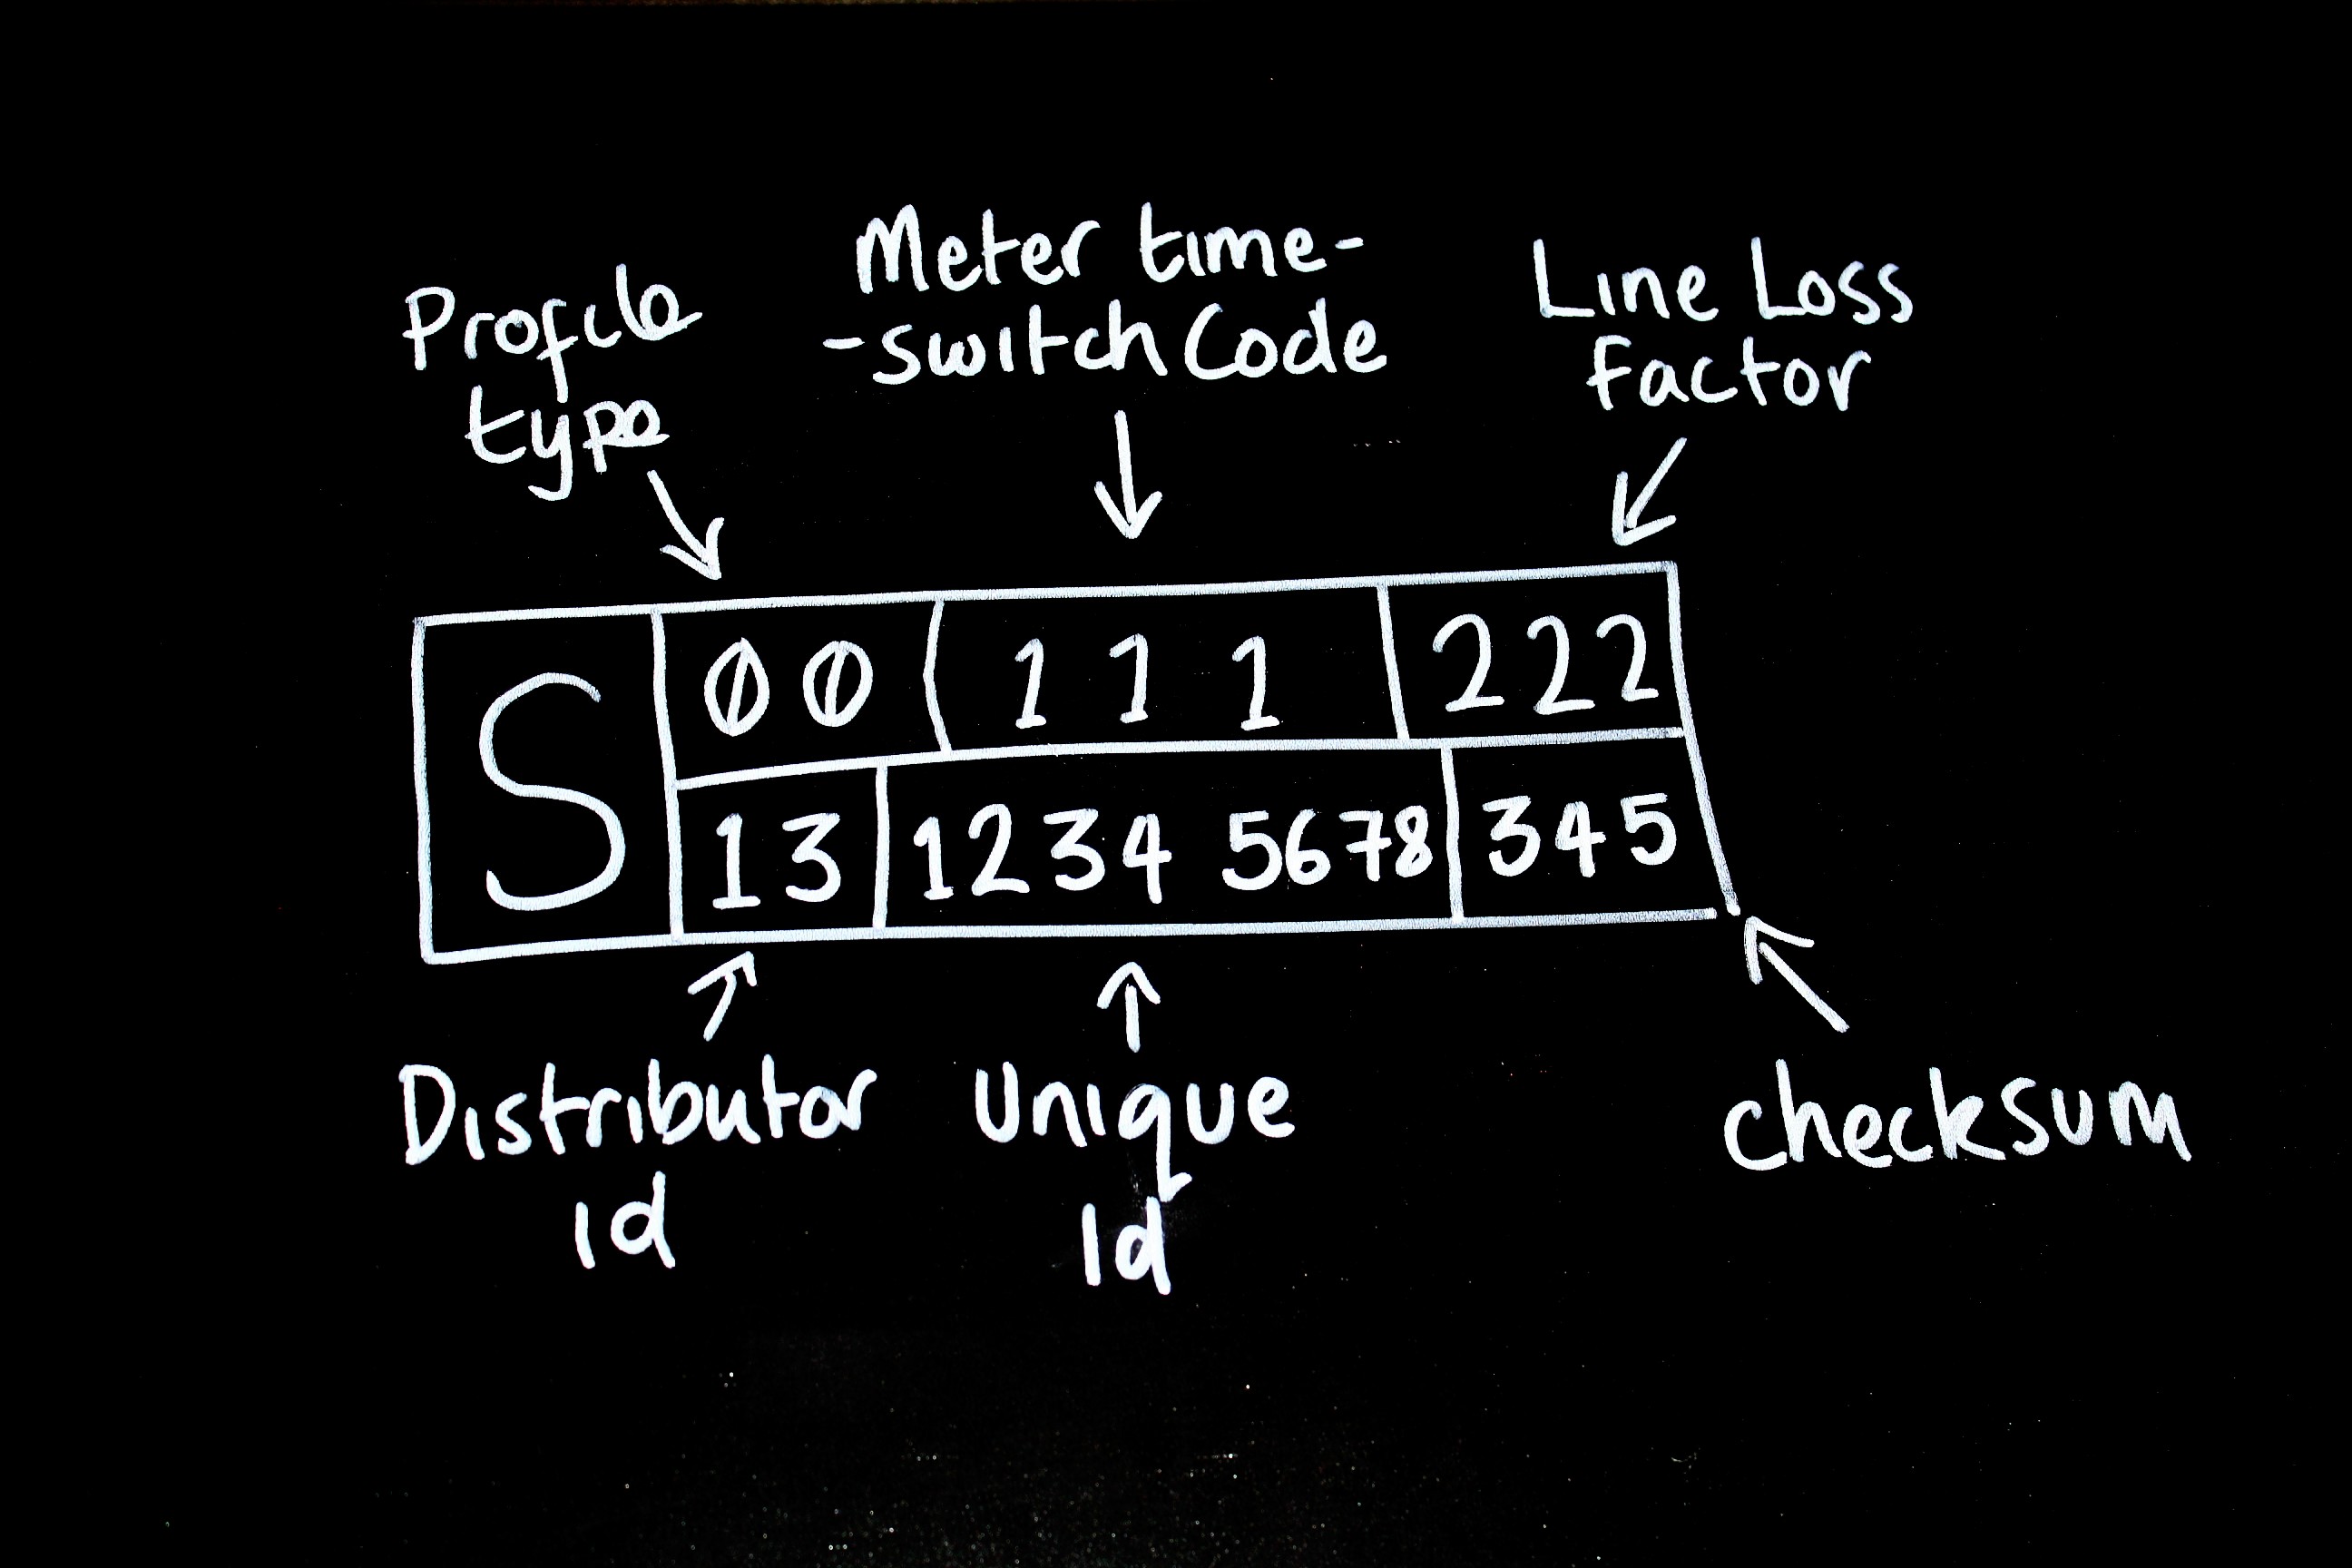 Meter time-
Profile
-switch Code
Line Loss
Factor
type
S
00 111 222
13 1234 5678 345
Distributor
id
Unique
Id
checksum